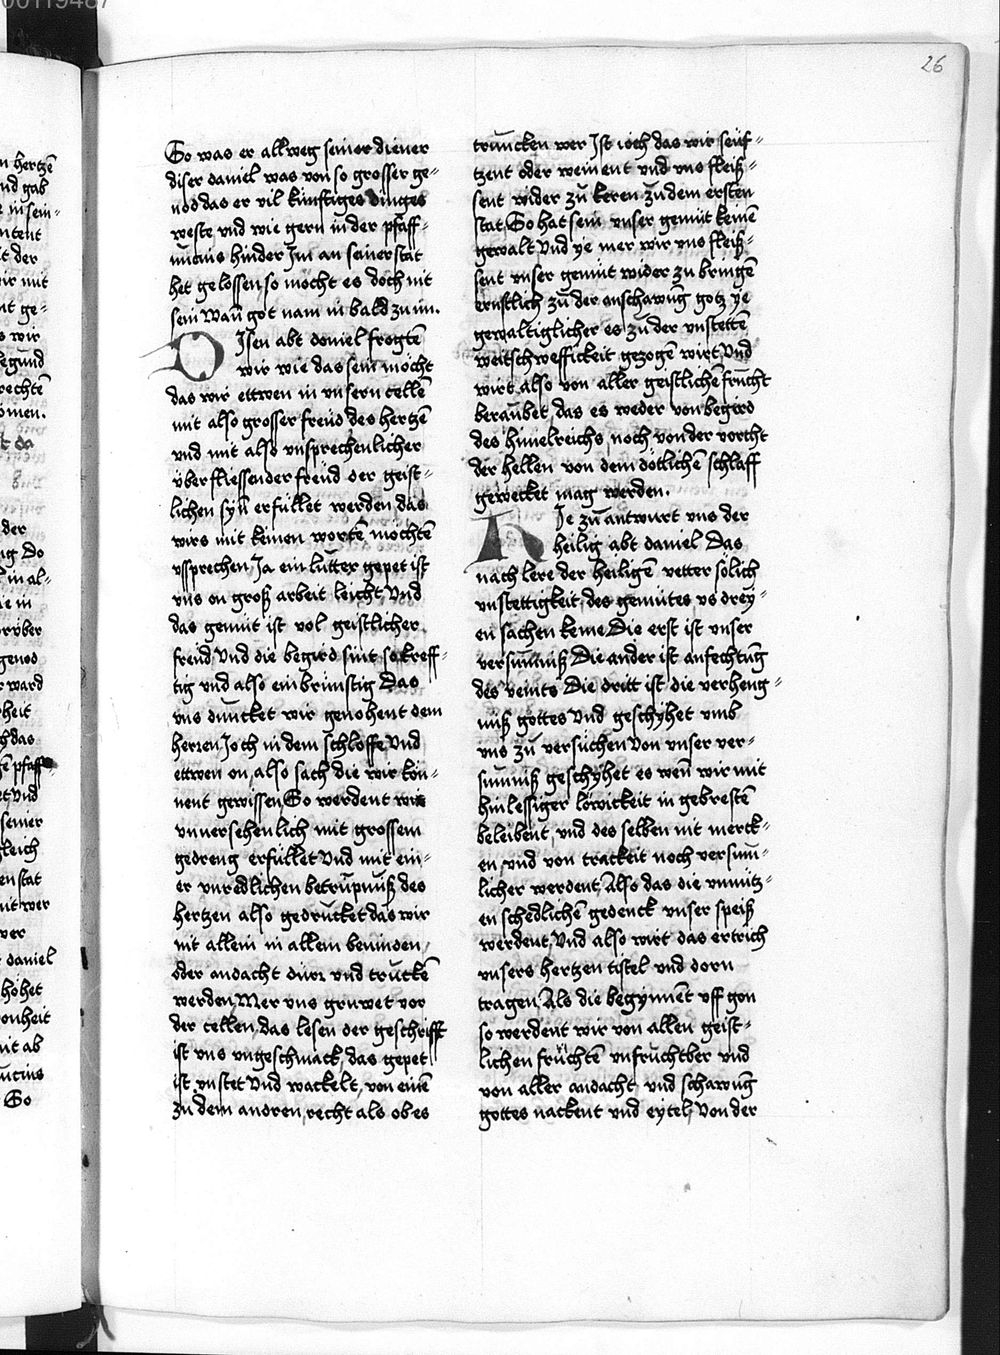 26
So was er allweg seiner diener
diser daniel was von so grosser ge-
nod das er vil künftiges dinges
weste vnd wie gern in der pfaff-
nucius hinder Jm an seiner stat
het gelossen so möcht es doch nit
sein Wan̄ got nam in bald zu im.
DIsen abt doniel frogtē
wir wie das sein möcht
das wir ettwen in vnsern cellē
mit also grosser freüd des hertzē
vnd mit also vnsprechenlicher
überfliessender freüd der geist-
lichen syn̄ erfüllet werden das
wirs mit keinen wortē möchtē
vssprechen Ja ein lutter gepet ist
vns on groß arbeit leicht Vnd
das gemüt ist vol geistlicher
freüd Vnd die begird sint so kreff-
tig vnd also einbrinstig Das
vns duncket wir genohent dem
herren Joch in dem schloffe Vnd
ettwen on also sach die wir kön-
nent gewissen So werdent wir
vnnersehenlich mit grossem
gedreng erfüllet Vnd mit ein-
er vnredlichen betrüpnüß des
hertzen also gedrucket das wir
nit allein in allem beuinden
oder andacht dürr vnd truckē
werden Mer vns gruwet vor
der cellen das lesen der geschrifft
ist vns vngeschmack das gepet
ist vnstet Vnd wackelt von einē
zu dem andren recht als ob es
truncken wer Jst ioch das wir seüf-
tzent oder weinent vnd vns fleiß-
sent wider zu keren zu dem ersten
stat So hat sein vnser gemüt keinē
gewalt Vnd ye mer wir vns fleiß-
sent vnser gemüt wider zu bringē
ernstlich zu der anschawūg gotz ye
gewaltiglicher es zu der vnstettē
weitschweffickeit gezogē wirt Vnd
wirt also von aller geistlichē frucht
beraubet das es weder von begird
des himelreichs noch von der vorcht
der hellen von dem dötlichē schlaff
gewecket mag werden.
HIe zu antwurt vns der
heilig abt daniel Das
nach lere der heiligē vetter sölich
vnstettigkeit des gemütes vs drey-
en sachen keme Die erst ist vnser
versumniß Die ander ist anfechtūg
des veints Die dritt ist die verheng-
niß gottes Vnd geschyhet vmb
vns zu versuchen Von vnser ver-
sumniß geschyhet es wen̄ wir mit
hinlessiger löwickeit in gebrestē
beleibent vnd des selben nit merck-
en vnd von trackeit noch versum-
licher werdent Also das die vnnütz-
en schedlichē gedenck vnser speiß
werdent Vnd also wirt das ertrich
vnsers hertzen tistel vnd dorn
tragen Als die begynnēt vff gon
so werdent wir von allen geist-
lichen früchtē vnfruchtber vnd
von aller andacht vnd schawūg
gottes nackent vnd eytel Von der